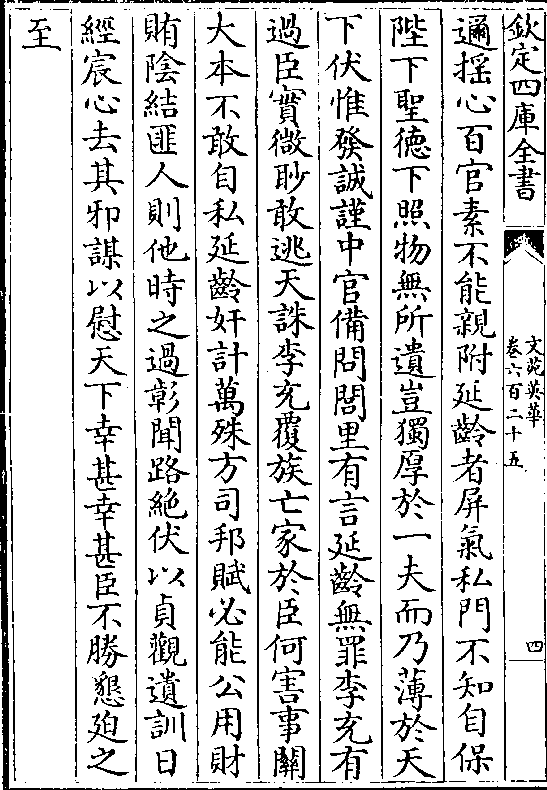 欽定四庫全書
文苑英華
卷六百二十五
四
邇揺心百官素不能親附延齡者屏氣私門不知自保
陛下聖德下照物無所遺豈獨厚於一夫而乃薄於天
下伏惟發誠謹中官備問閭里有言延齡無罪李充有
過臣實微眇敢逃天誅李充覆族亡家於臣何害事關
大本不敢自私延齡奸計萬殊方司邦賦必能公用財
賄陰結匪人則他時之過彰聞路絶伏以貞觀遺訓日
經宸心去其邪謀以慰天下幸甚幸甚臣不勝懇廹之
至